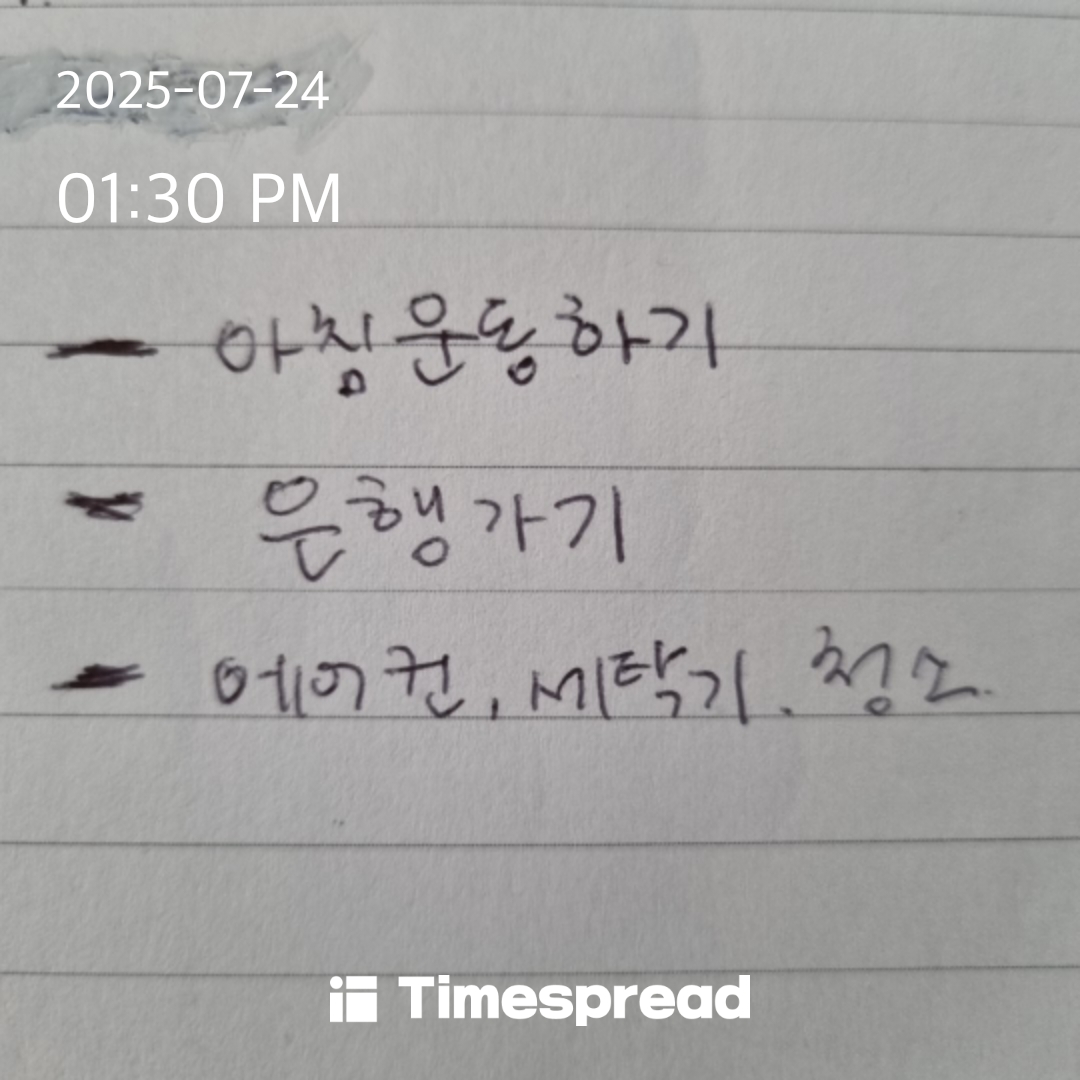 2025-07-24
01:30 PM
- 아침운동하기
- 은행가기
- 에어컨, 세탁기. 청소.
Timespread